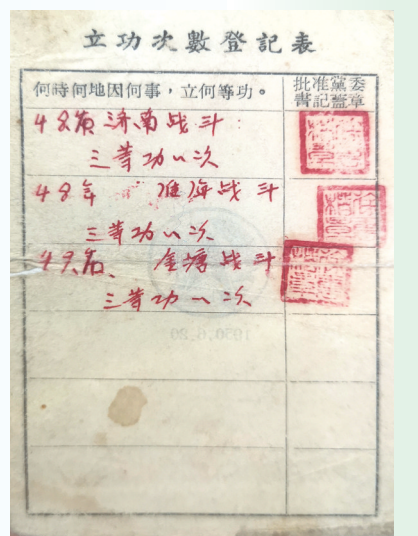 立功次數登記表
何時何地因何事，立何等功。
批准黨委
書記蓋章
48年 济南战斗
三等功一次
48年 淮海战斗
三等功一次
49年 金塘战斗
三等功一次